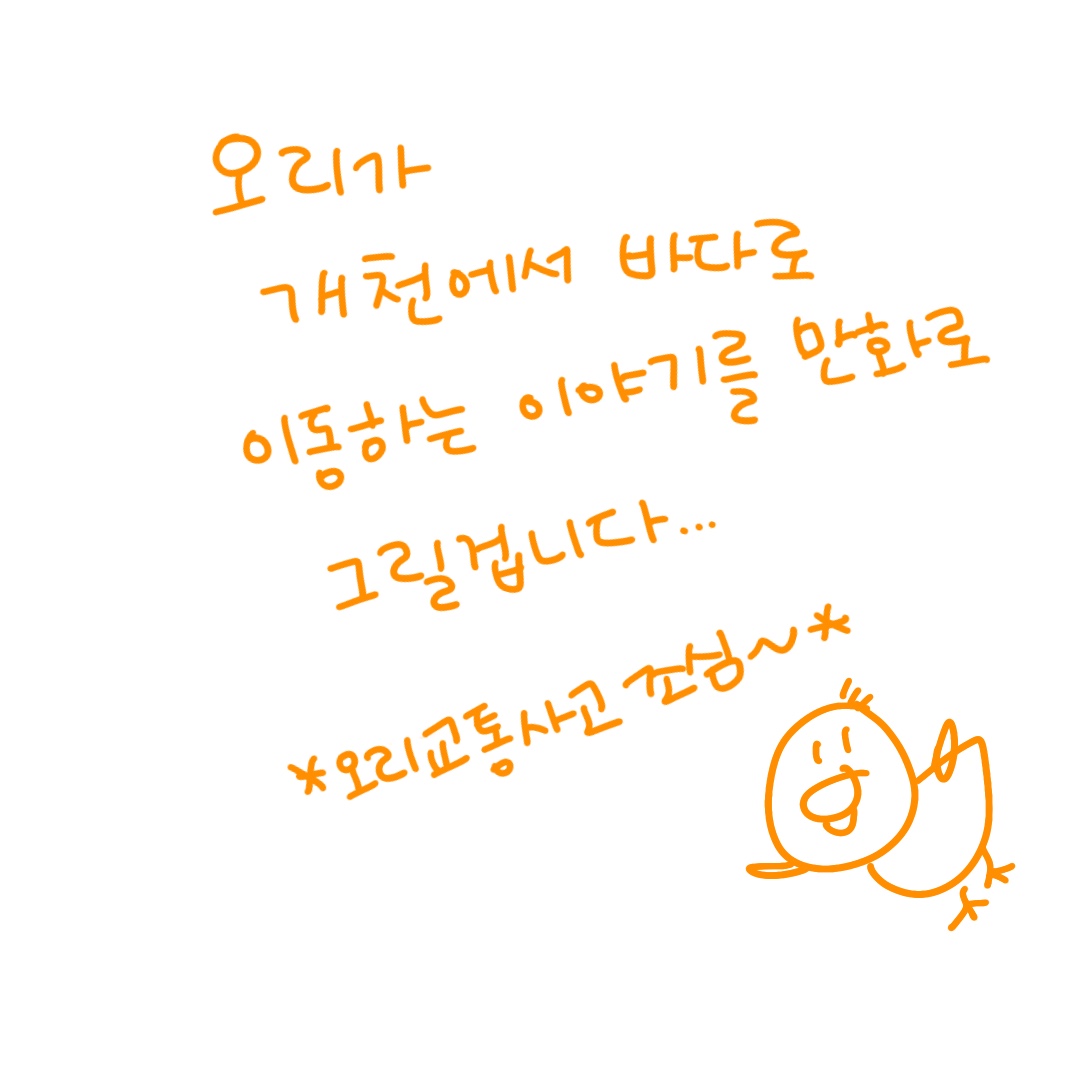 오리가
개천에서 바다로
이동하는 이야기를 만화로
그릴겁니다...
*오리교통사고 조심~*